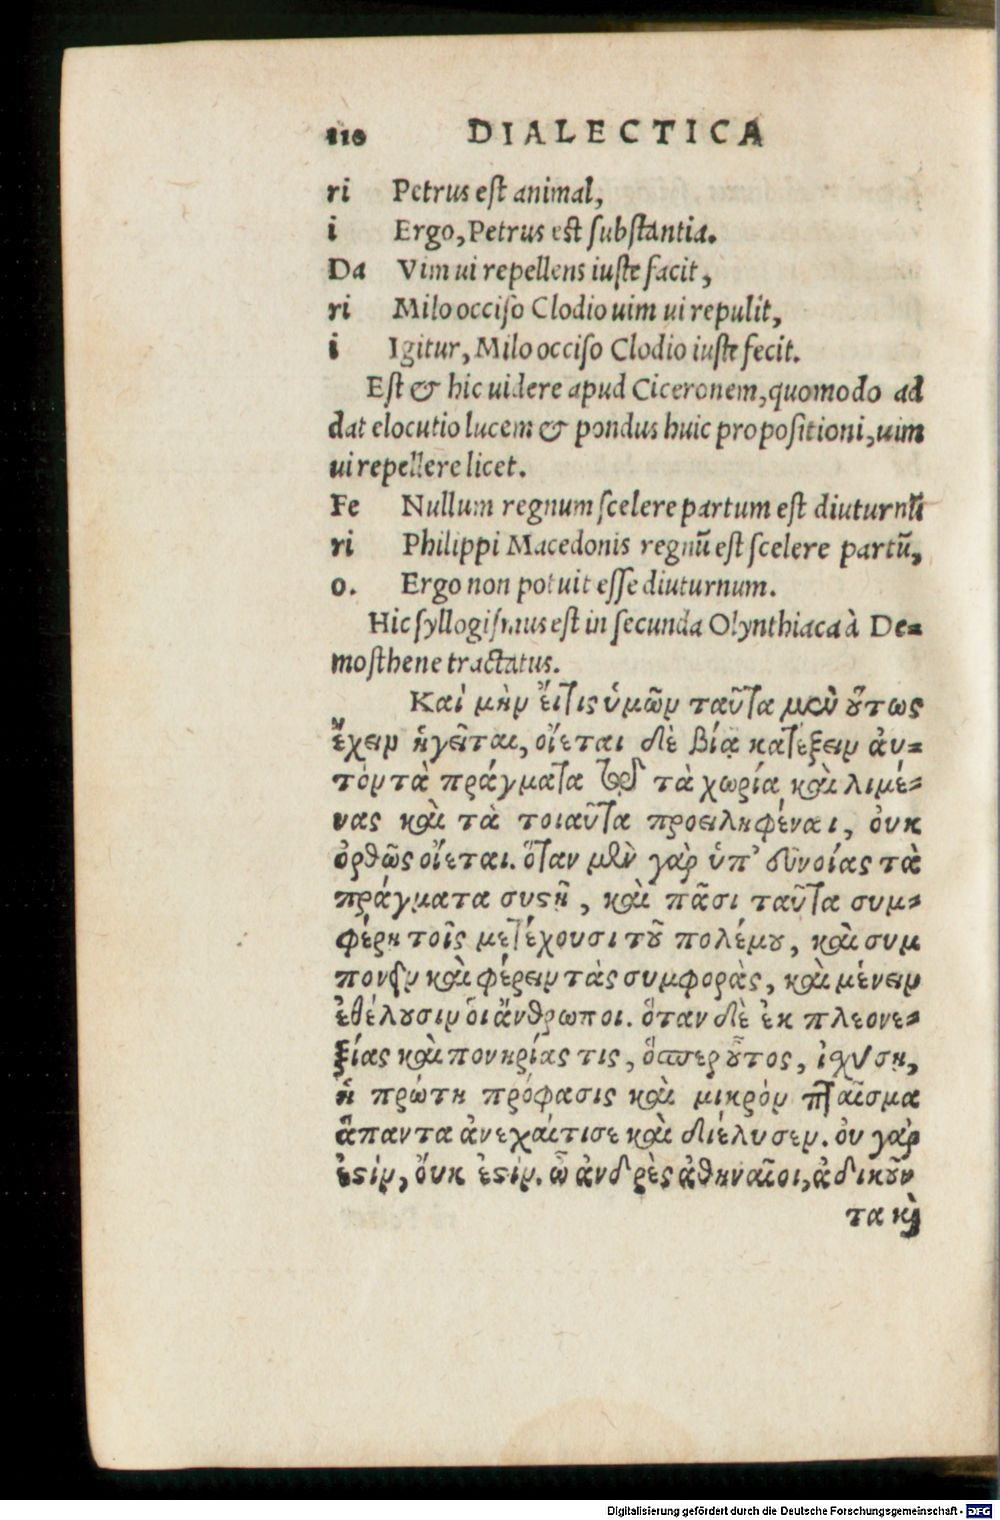 110 DIALECTICA
ri Petrus est animal,
i Ergo, Petrus est substantia.
Da Vim ui repellens iuste facit,
ri Milo occiso Clodio uim ui repulit,
i Igitur, Milo occiso Clodio iuste fecit.
Est & hic uidere apud Ciceronem, quomodo ad
dat elocutio lucem & pondus huic propositioni, uim
ui repellere licet.
Fe Nullum regnum scelere partum est diuturnũ
ri Philippi Macedonis regnũ est scelere partũ,
o. Ergo non potuit esse diuturnum.
Hic syllogismus est in secunda Olynthiaca à De=
mosthene tractatus.
Καὶ μὴν ἔιτις ὑμῶν ταῦτα μὲν ὅυτως
ἔχειν ἡγεῖται, οἴεται δὲ βίᾳ καθέξειν ἀυ=
τὸν τὰ πράγματα τῷ τὰ χωρία καὶ λιμέ=
νας καὶ τὰ τοιαῦτα προειληφέναι, ὀυκ
ὀρθῶς οἴεται. ὅταν μὲν γὰρ ὑπ’ ἐυνοίας τὰ
πράγματα συστῆ, καὶ πᾶσι ταῦτα συμ=
φέρη τοῖς μετέχουσι τοῦ πολέμου, καὶ συμ
πονεῖν καὶ φέρειν τὰς συμφορὰς, καὶ μένειν
ἐθέλουσιν ὁι ἄνθρωποι. ὅταν δὲ ἐκ πλεονε=
ξίας καὶ πονηρίας τις, ὥσπερ οὗτος, ἰσχύση,
ἡ πρώτη πρόφασις καὶ μικρὸν πταῖσμα
ἅπαντα ἀνεχαίτισε καὶ διέλυσεν. ὀυ γὰρ
ἐστίν, ὄυκ ἐστίν. ὦ ἀνδρὲς ἀθηναῖοι, ἀδικοῦν
τα κὶ
Digitalisierung gefördert durch die Deutsche Forschungsgemeinschaft - DFG